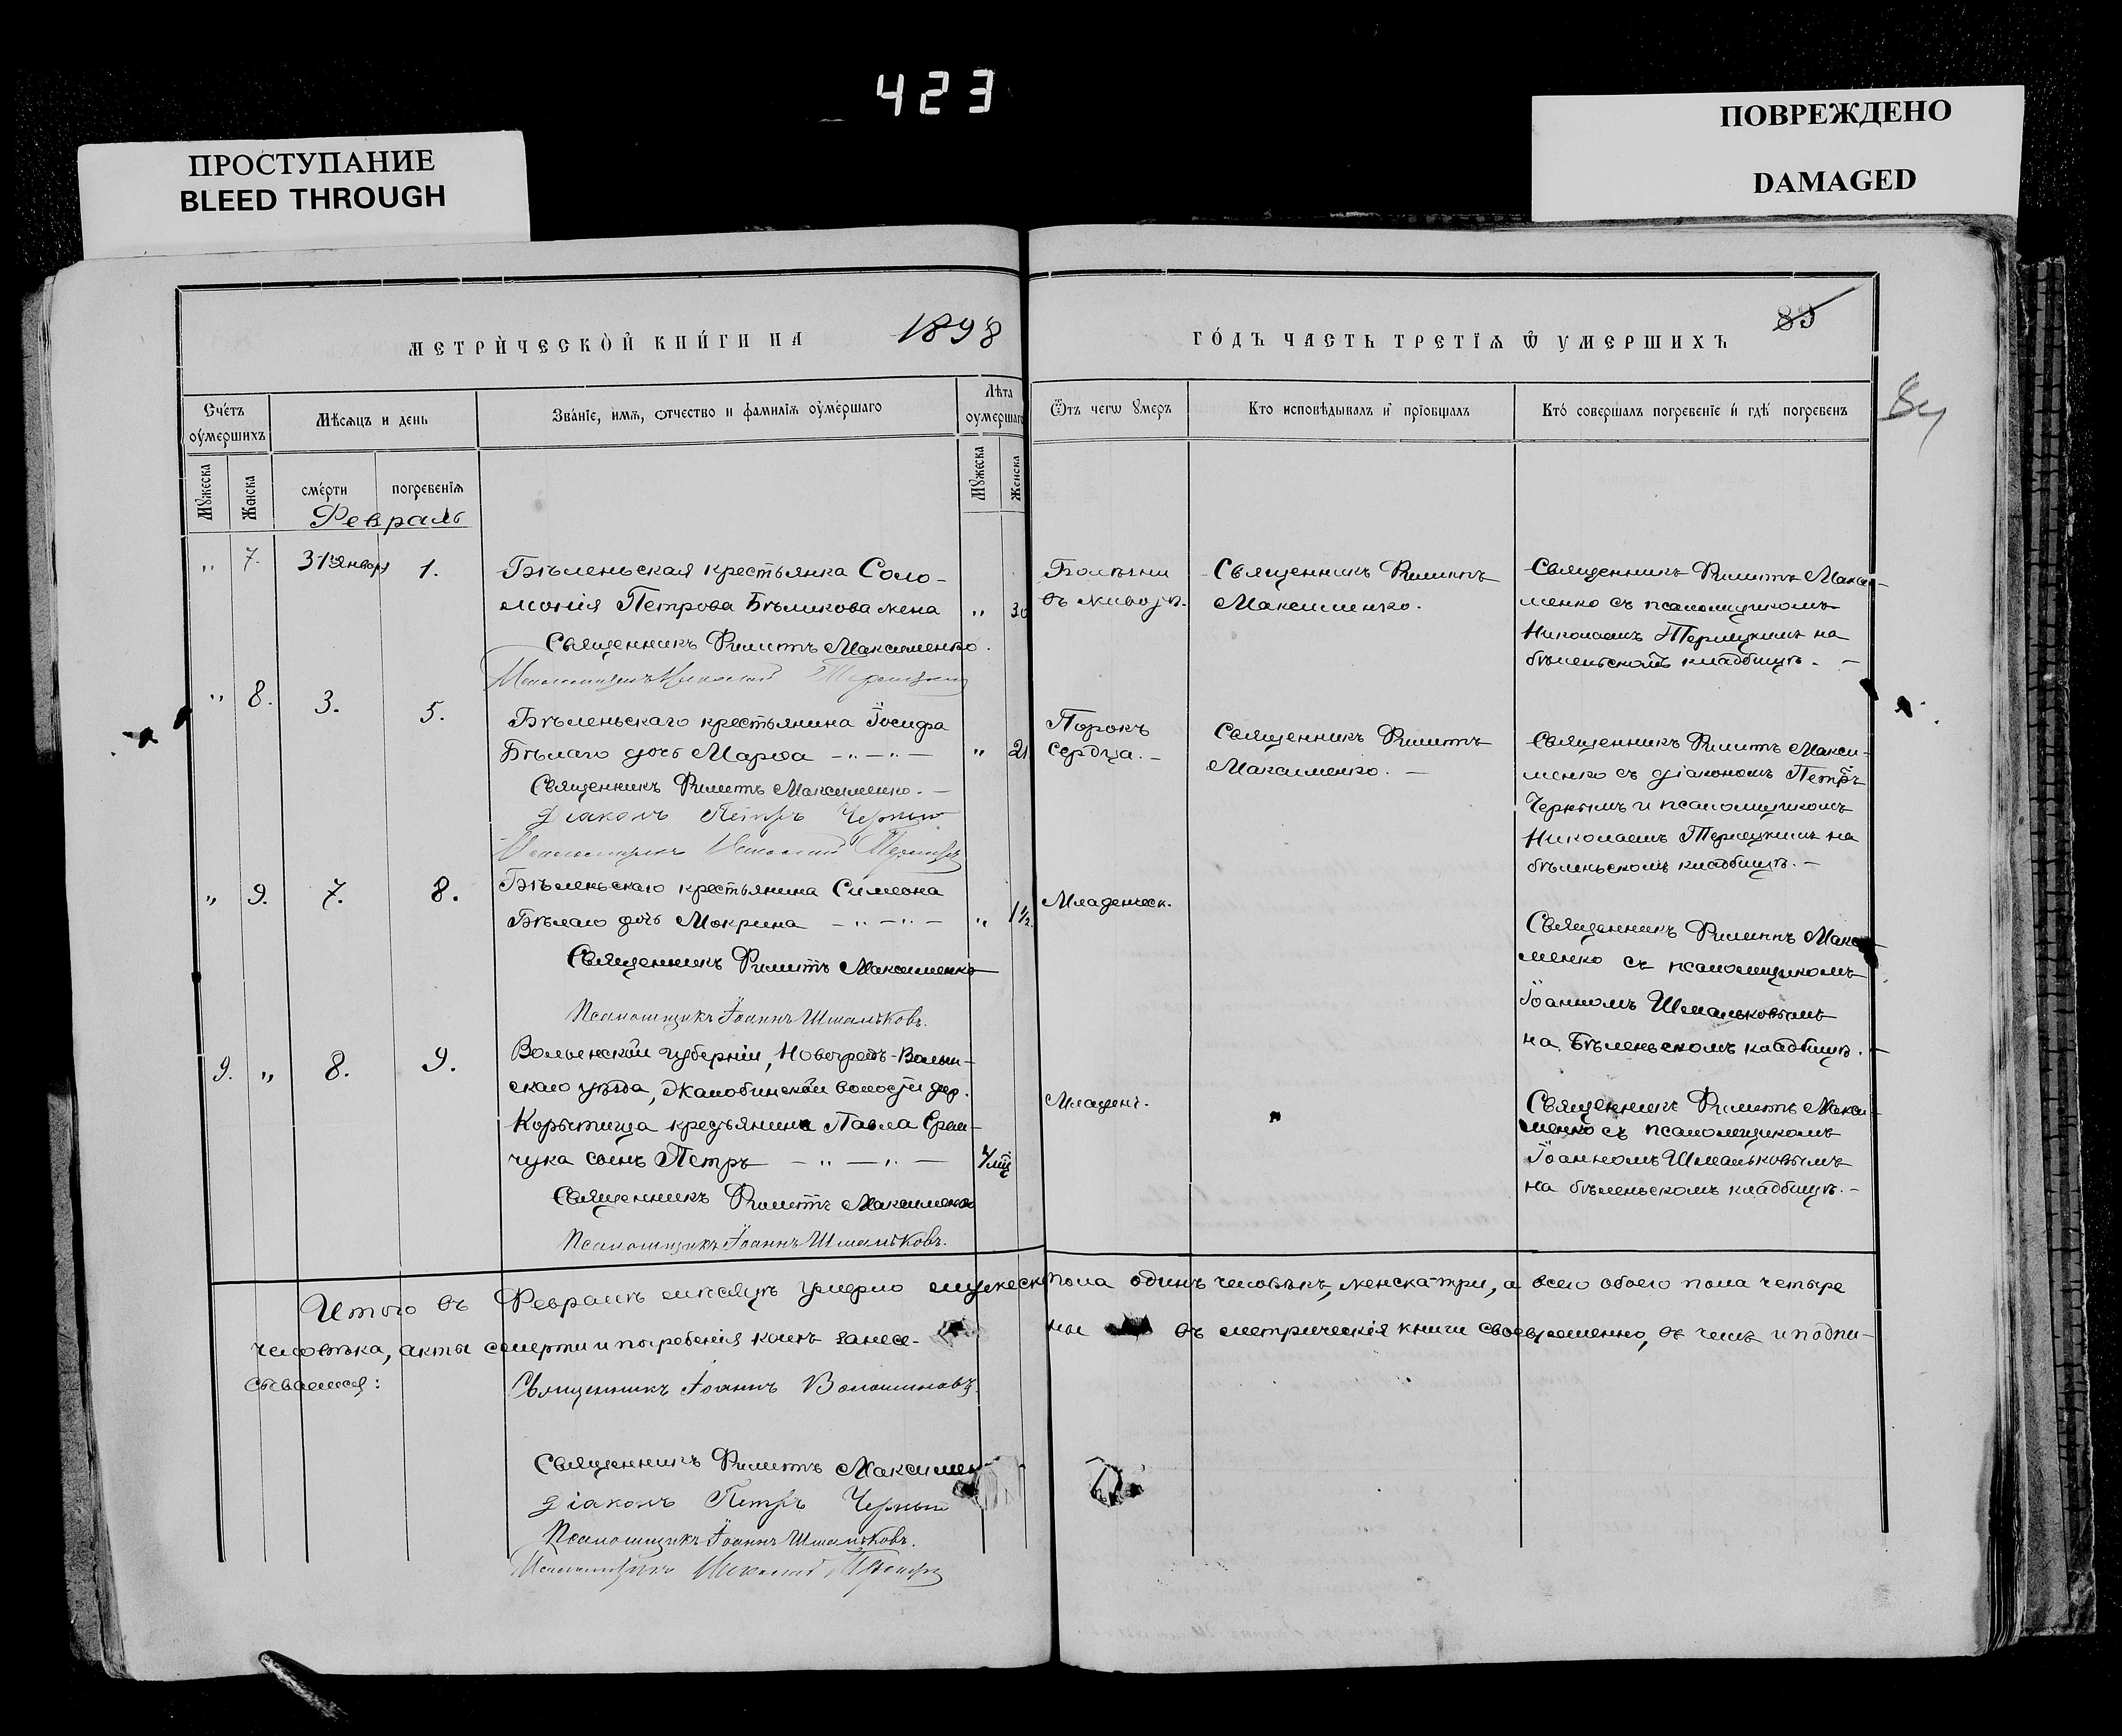 423
ПРОСТУПАНИЕ
BLEED THROUGH
ПОВРЕЖДЕНО
DAMAGED
МЕТРИ́ЧЕСКО̀Й КНИ́ГИ НА 1898
ГО́ДЪ ЧАСТЬ ТРЕТІЯ Ѿ УМЕРШИХЪ
89
84
Сче́тъ оу́мершихъ
Мѣсяцъ и день
Зва́нїе, имя, отчество и фамилїя оу́ме́ршаго
Лѣта оу́мершаго
Ѿтъ чегѡ ᲂумеръ
Кто исповѣдывалъ и прїобщалъ
Кто́ совершалъ погребенїе и́ гдѣ̀ погребенъ
Мужеска
Женска
сме́рти
погребенїя
Мужеска
Женска
Февраль
„ 7. 31 Января 1.
Бѣленьская крестьянка Соло-
монія Петрова Бѣликова жена „ 30
Священникъ Филиппъ Максименко.
Псаломщикъ Николай Терлецкій
Болѣзни
въ животѣ.
Священникъ Филиппъ
Максименко.
Священникъ Филиппъ Макси-
менко съ псаломщикомъ
Николаемъ Терлецкимъ на
бѣленьскомъ кладбищѣ. —
„ 8. 3. 5.
Бѣленьскаго крестьянина Іосифа
Бѣлаго дочь Марѳа — „ — „ — „ 21
Священникъ Филиппъ Максименко. —
Діаконъ Петръ Черный
Псаломщикъ Николай Терлецкій
Порокъ
сердца. —
Священникъ Филиппъ
Максименко. —
Священникъ Филиппъ Макси-
менко съ діакономъ Петръ
Чернымъ и псаломщикомъ
Николаемъ Терлецкимъ на
бѣленьскомъ кладбищѣ. —
„ 9. 7. 8.
Бѣленьскаго крестьянина Симеона
Бѣлаго дочь Мокрина — „ — „ — „ 1½.
Священникъ Филиппъ Максименко
Псаломщикъ Іоаннъ Шмальковъ.
Младенческ.
Священникъ Филиппъ Макси-
менко съ псаломщикомъ
Іоанномъ Шмальковымъ
на Бѣленьскомъ кладбищѣ. —
9. „ 8. 9.
Волынской губерніи, Новоградъ-Волын-
скаго уѣзда, Жалобинской волости дер.
Корытища крестьянина Павла
чука сынъ Петръ — „ — „ —
Священникъ Филиппъ Максименко
Псаломщикъ Іоаннъ Шмальковъ.
Младенч.
„
Священникъ Филиппъ Макси-
менко съ псаломщикомъ
Іоанномъ Шмальковымъ
на бѣленьскомъ кладбищѣ. —
Итого въ Февралѣ мѣсяцѣ умерло мужеск пола одинъ человѣкъ, женска-три, а всего обоего пола четыре
человѣка, акты смерти и погребенія коихъ занесе- ны въ метрическія книги своевременно, въ чемъ и подпи-
сываемся:
Священникъ Іоаннъ Волошиновъ.
Священникъ Филиппъ Максимен
Діаконъ Петръ Черный
Псаломщикъ Іоаннъ Шмальковъ.
Псаломщикъ Николай Терлецкій